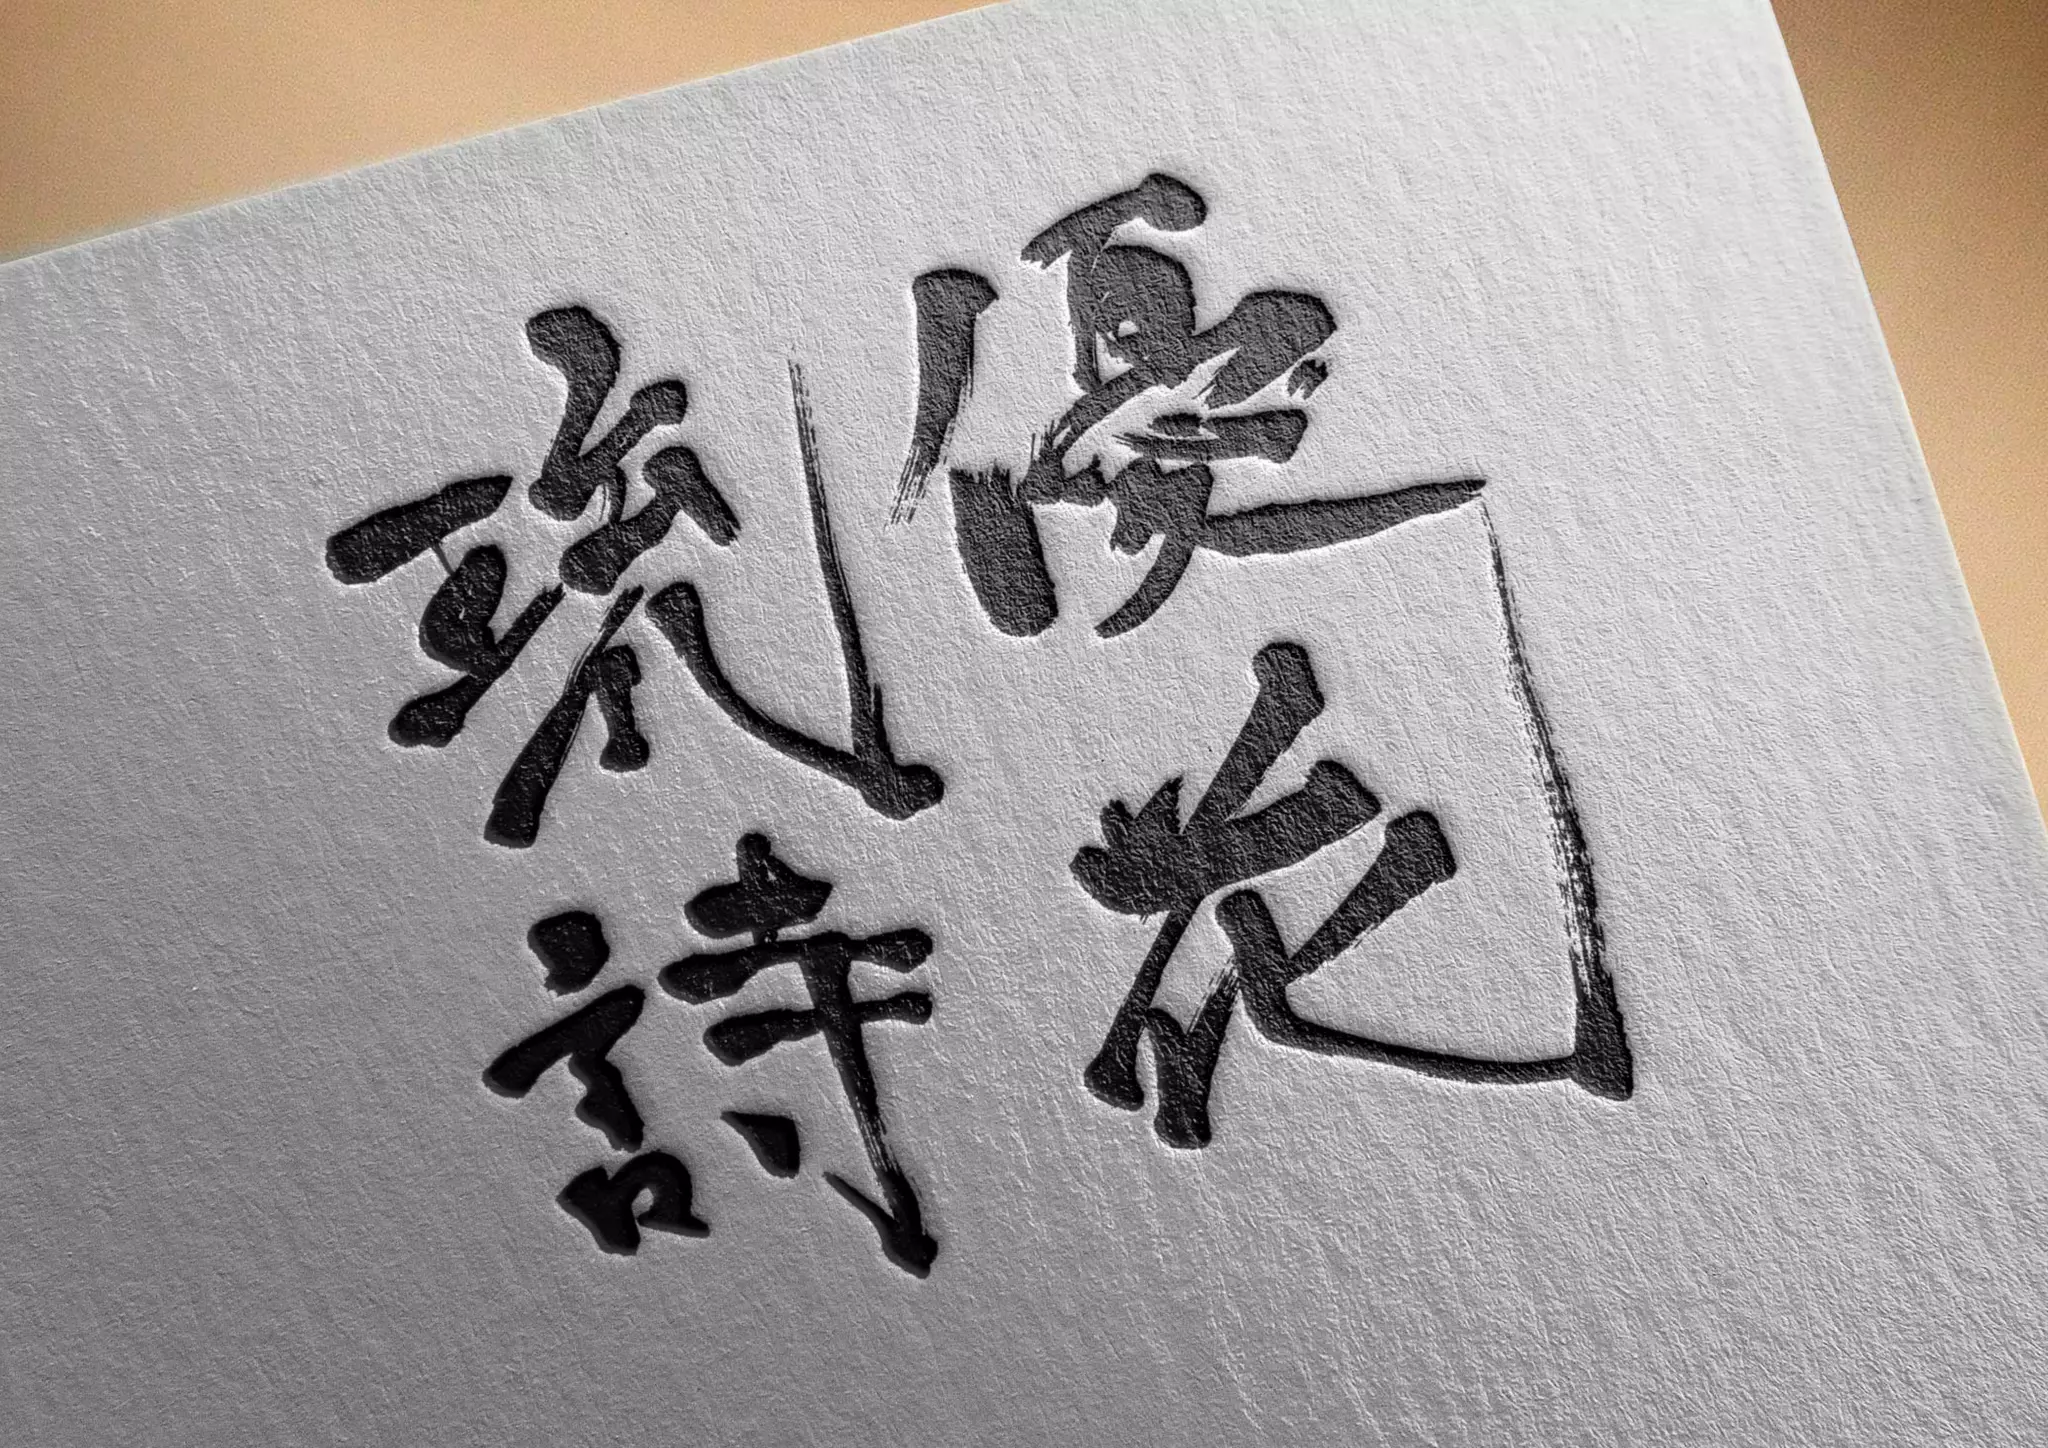 優花
琉詩